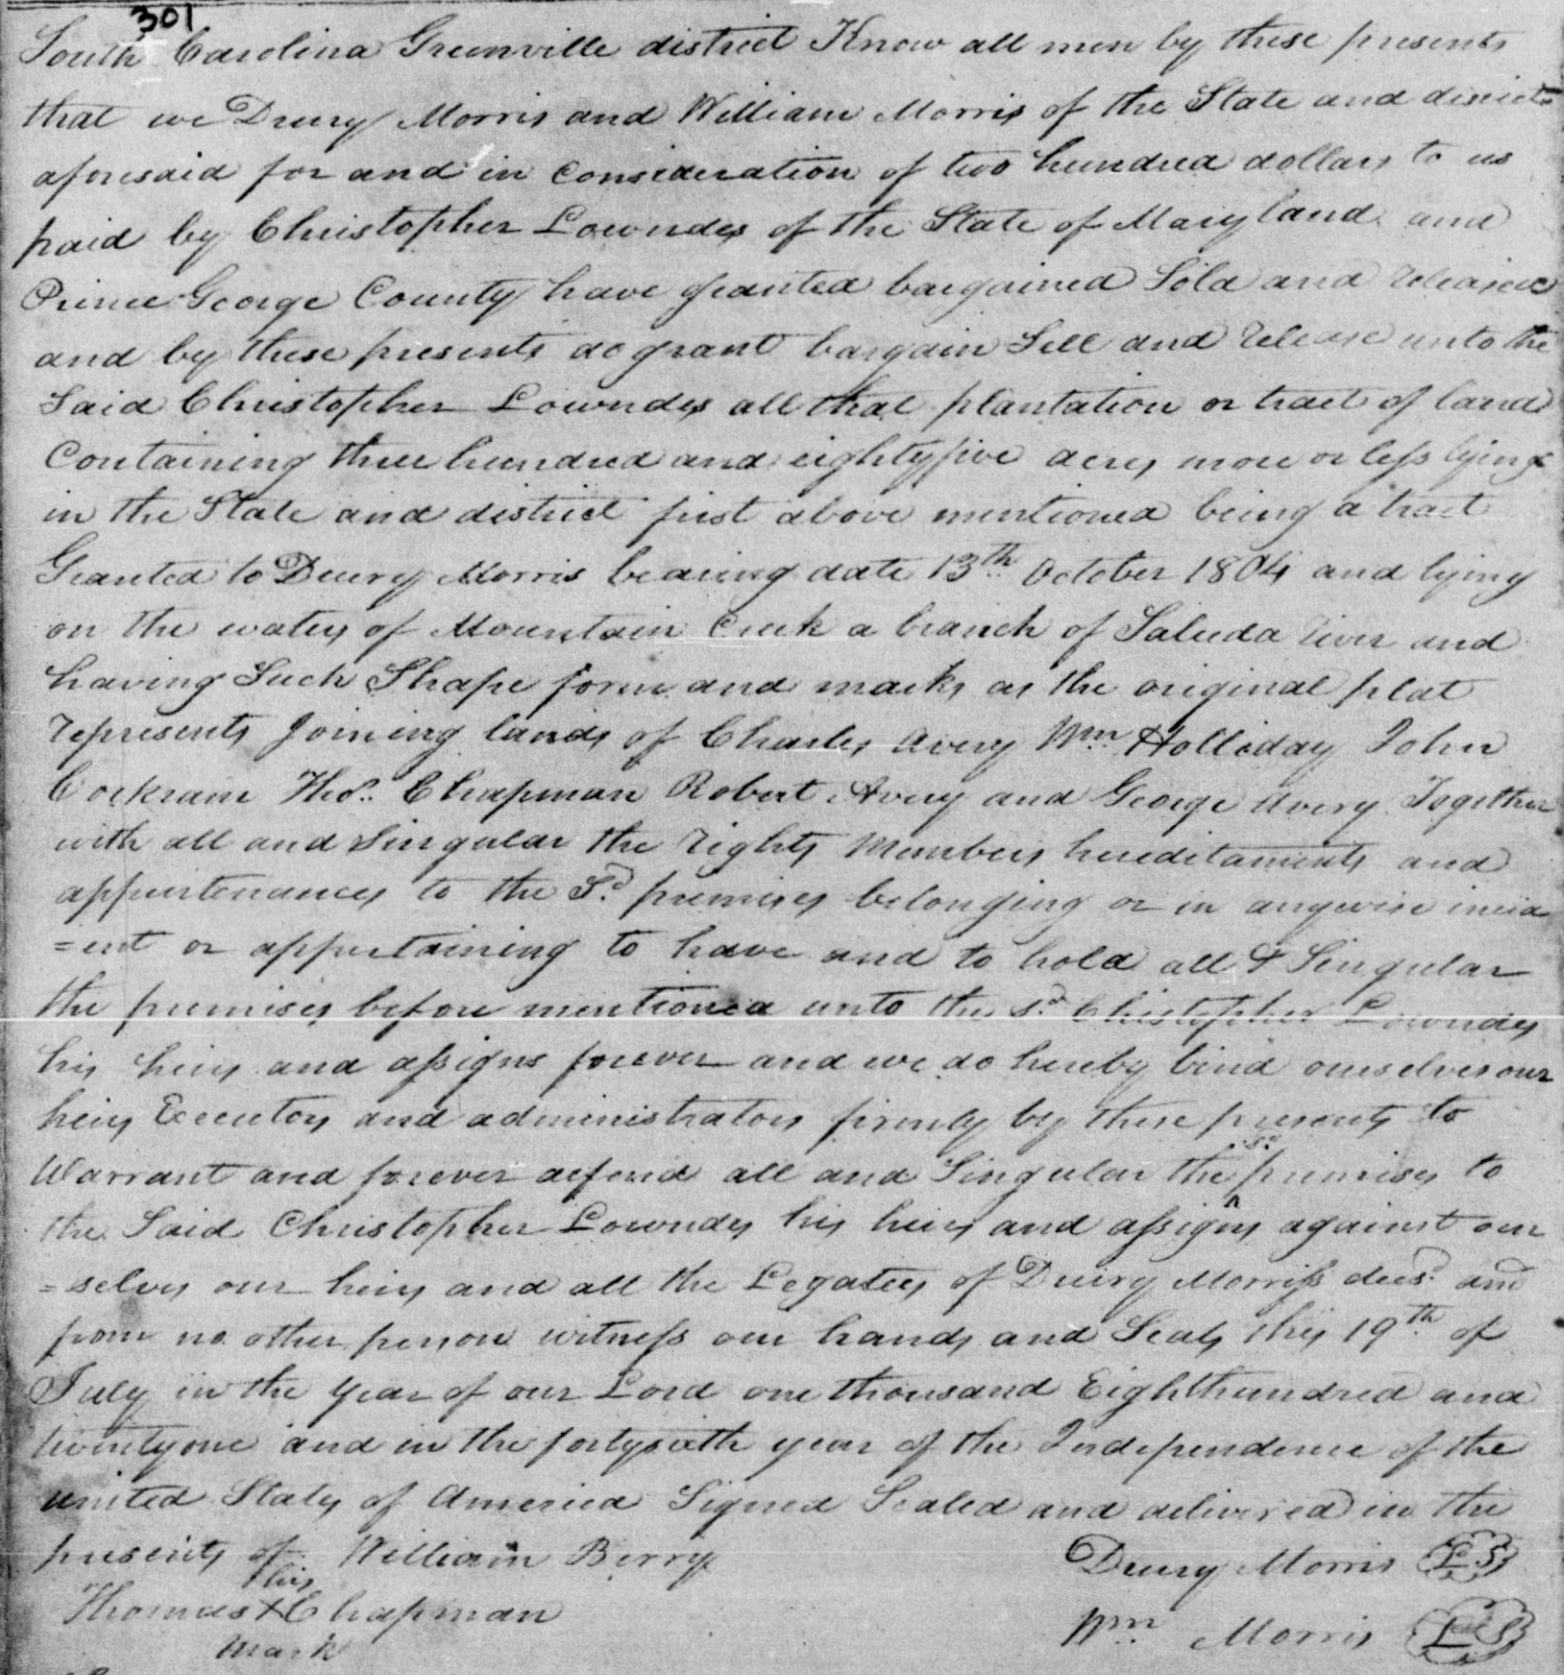 301
South Carolina Greenville district Know all men by these presents
that we Drury Morris and William Morris of the State and district
aforesaid for and in Consideration of two hundred dollars to us
paid by Christopher Lowndes of the State of Maryland and
Prince George County have granted bargained Sold and released
and by these presents do grant bargain Sell and release unto the
Said Christopher Lowndes all that plantation or tract of land
Containing three hundred and eightyfive acres more or less lying
in the State and district first above mentioned being a tract
Granted to Drury Morris bearing date 13th October 1804 and lying
on the waters of Mountain Creek a branch of Saluda river and
having Such Shape form and marks as the original plat
represents Joining lands of Charles Avery Wm Holliday John
Cockram Thos. Chapman Robert Avery and George Avery Together
with all and Singular the rights members hereditaments and
appurtenances to the Sd. premises belonging or in anywise incid
=ent or appertaining to have and to hold all & Singular
the premises before mentioned unto the sd. Christopher Lowndes
his heirs and assigns forever and we do hereby bind ourselves our
heirs Executors and administrators firmly by these presents to
Warrant and forever defend all and Singular the sd. premises to
the Said Christopher Lowndes his heirs and assigns against our
=selves our heirs and all the Legatees of Drury Morriss decsd. and
from no other person witness our hands and Seals this 19th of
July in the year of our Lord one thousand Eighthundred and
twentyone and in the fortysixth year of the Independence of the
united States of America Signed Sealed and delivered in the
presents of William Berry Drury Morris LS
Thomas his X mark Chapman Wm Morris LS